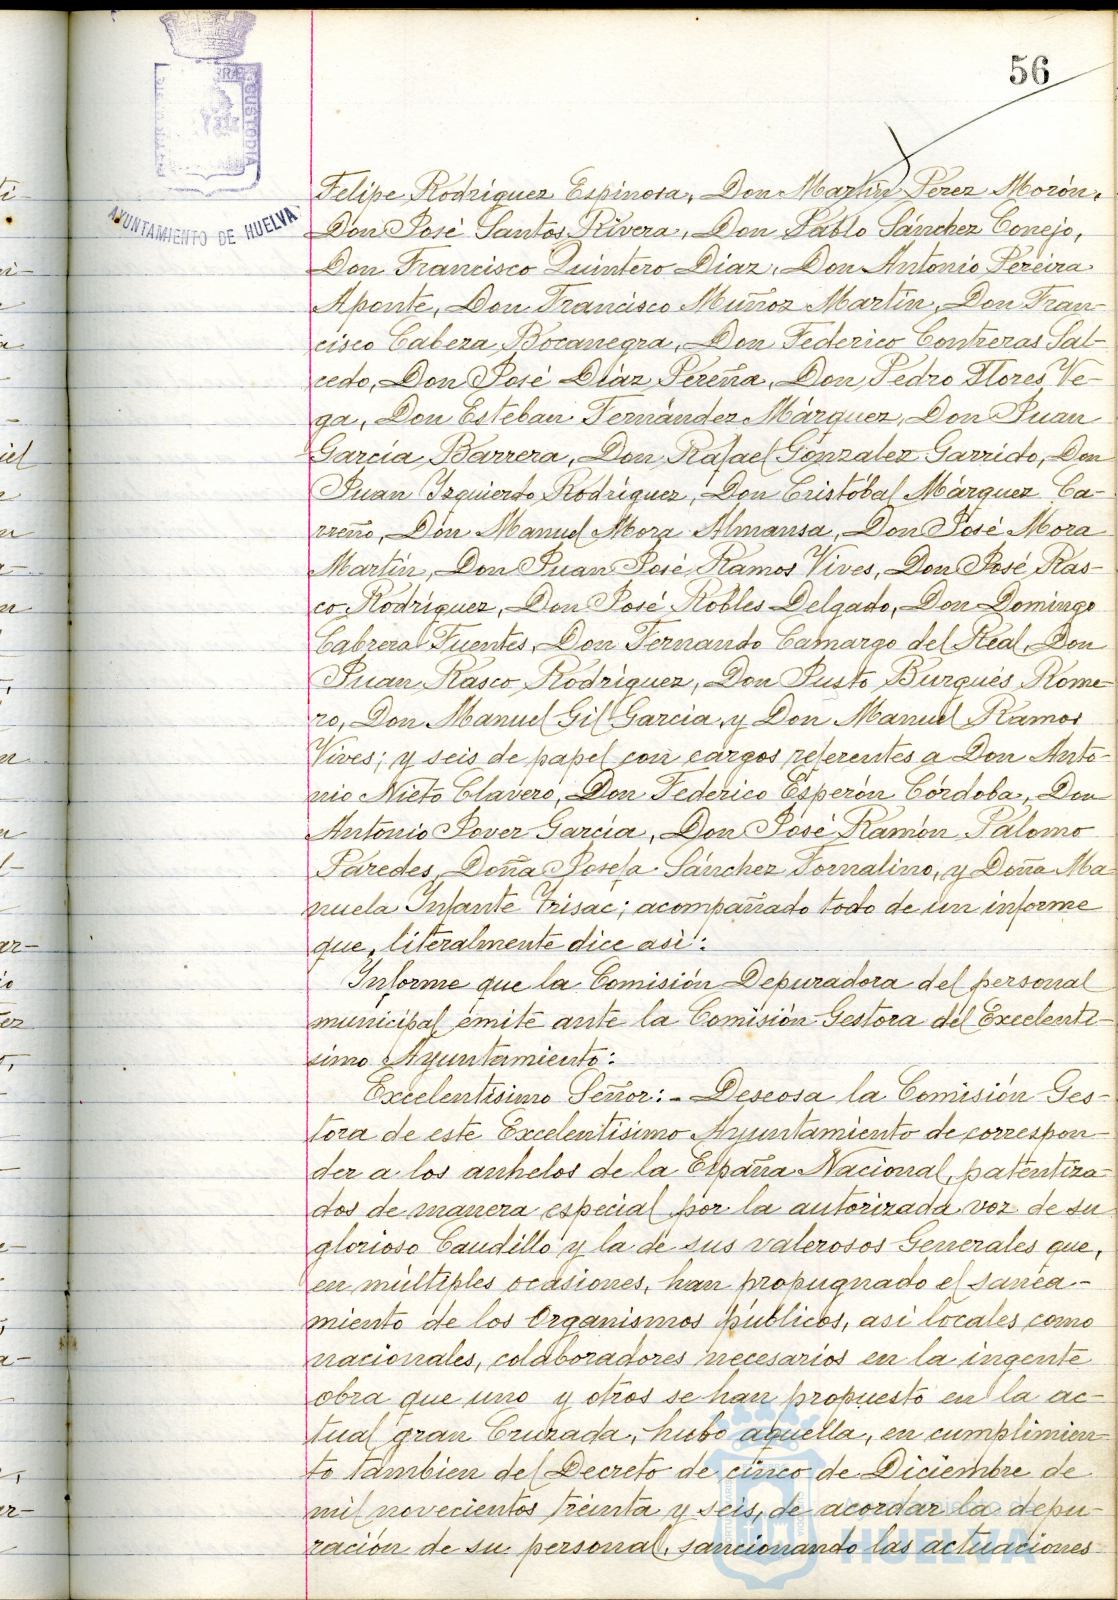 56
AYUNTAMIENTO DE HUELVA
CUSTODIA
Felipe Rodríguez Espinosa, Don Martín Pérez Morón,
Don José Santos Rivera, Don Pablo Sánchez Conejo,
Don Francisco Quintero Díaz, Don Antonio Pereira
Aponte, Don Francisco Muñoz Martín, Don Fran-
cisco Cabeza Bocanegra, Don Federico Contreras Sal-
cedo, Don José Díaz Pereña, Don Pedro Flores Ve-
ga, Don Esteban Fernández Márquez, Don Juan
García Barrera, Don Rafael González Garrido, Don
Juan Izquierdo Rodríguez, Don Cristóbal Márquez Ca-
rreño, Don Manuel Mora Almansa, Don José Mora
Martín, Don Juan José Ramos Vives, Don José Ras-
co Rodríguez, Don José Robles Delgado, Don Domingo
Cabrera Fuentes, Don Fernando Camargo del Real, Don
Juan Rasco Rodríguez, Don Justo Burgués Rome-
ro, Don Manuel Gil García, y Don Manuel Ramos
Vives; y seis de papel con cargos referentes a Don Anto-
nio Nieto Clavero, Don Federico Esperón Córdoba, Don
Antonio Jover García, Don José Ramón Palomo
Paredes, Doña Josefa Sánchez Tornalino, y Doña Ma-
nuela Infante Trisac; acompañado todo de un informe
que, literalmente dice así:
Informe que la Comisión Depuradora del personal
municipal emite ante la Comisión Gestora del Excelentí-
simo Ayuntamiento:
Excelentísimo Señor:- Deseosa la Comisión Ges-
tora de este Excelentísimo Ayuntamiento de correspon-
der a los anhelos de la España Nacional, patentiza-
dos de manera especial por la autorizada voz de su
glorioso Caudillo y la de sus valerosos Generales que,
en múltiples ocasiones, han propugnado el sanea-
miento de los Organismos públicos, así locales como
nacionales, colaboradores necesarios en la ingente
obra que uno y otros se han propuesto en la ac-
tual gran Cruzada, hubo aquella, en cumplimien-
to también del Decreto de cinco de Diciembre de
mil novecientos treinta y seis, de acordar la depu-
ración de su personal, sancionando las actuaciones
Ayuntamiento de
HUELVA